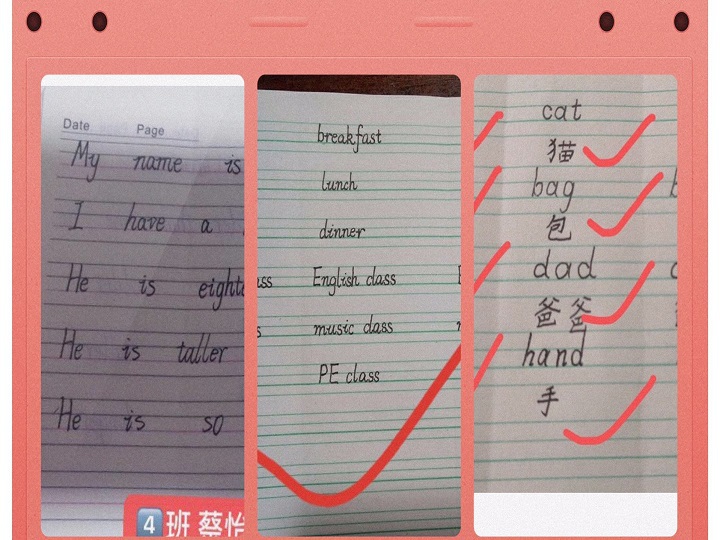 Date Page
My name is
I have a
He is
He is taller
He is so
4班 蔡怡
breakfast
lunch
dinner
English class
music class
PE class
cat
猫
bag
包
dad
爸爸
hand
手